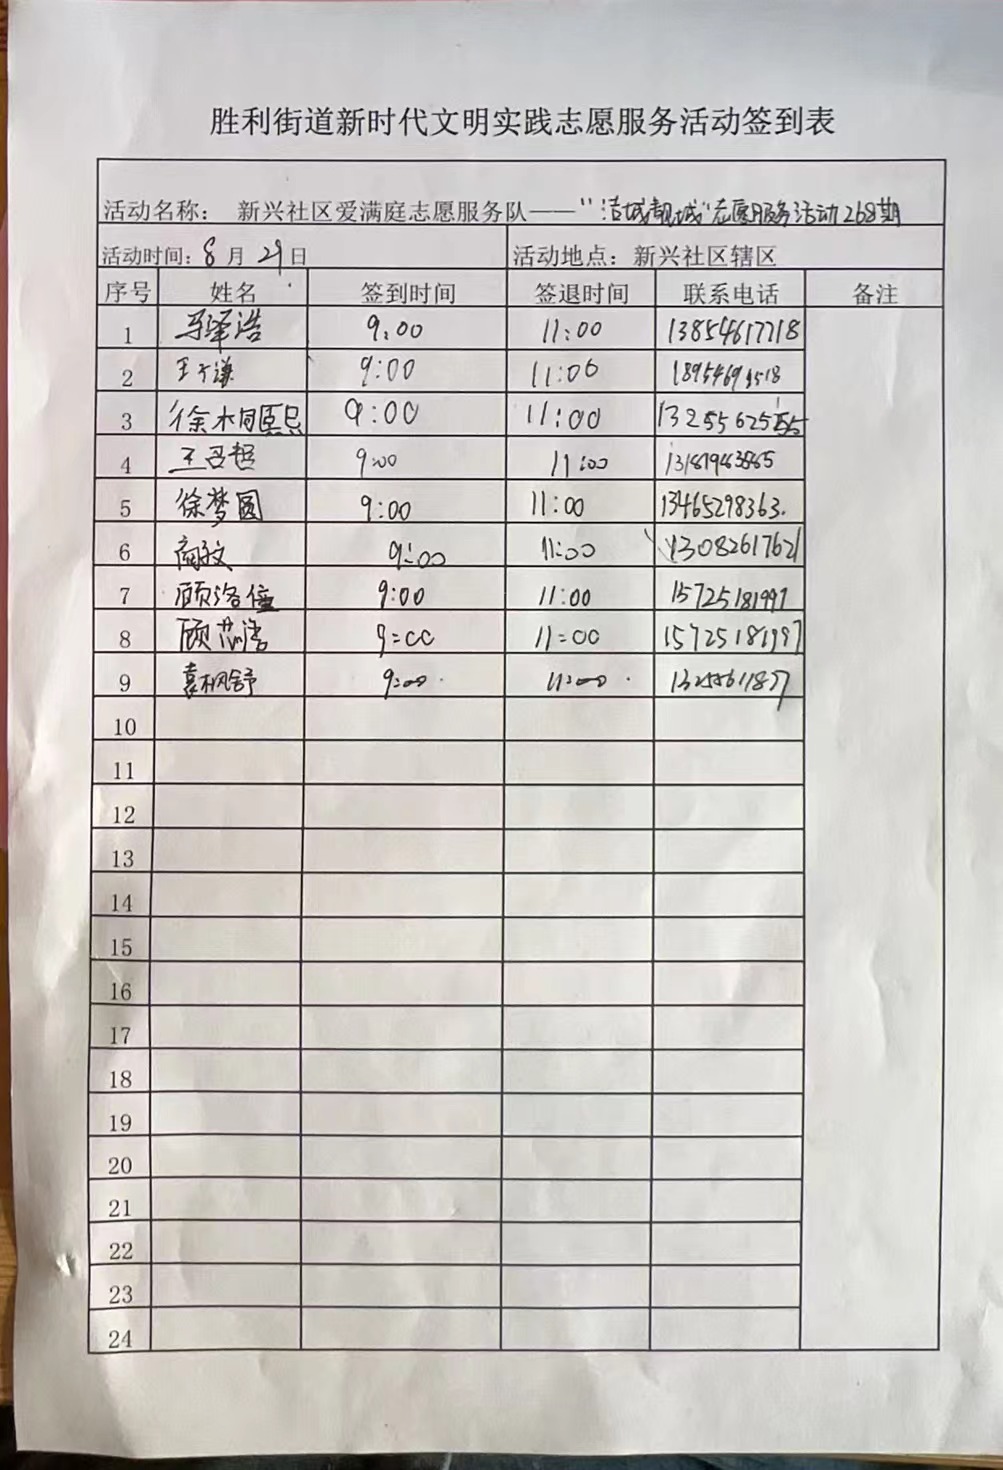 胜利街道新时代文明实践志愿服务活动签到表
活动名称： 新兴社区爱满庭志愿服务队——“洁城靓城”志愿服务活动268期
活动时间：8月29日 活动地点：新兴社区辖区
序号 姓名 签到时间 签退时间 联系电话 备注
1 马泽浩 9:00 11:00 13854617718
2 王子谦 9:00 11:00
3 9:00 11:00
4 9:00 11:00
5 徐梦圆 9:00 11:00 13465298363.
6 9:00 11:00 13082617621
7 9:00 11:00 15725181997
8 9:00 11:00 15725181997
9 袁枫舒 9:00 11:00
10
11
12
13
14
15
16
17
18
19
20
21
22
23
24